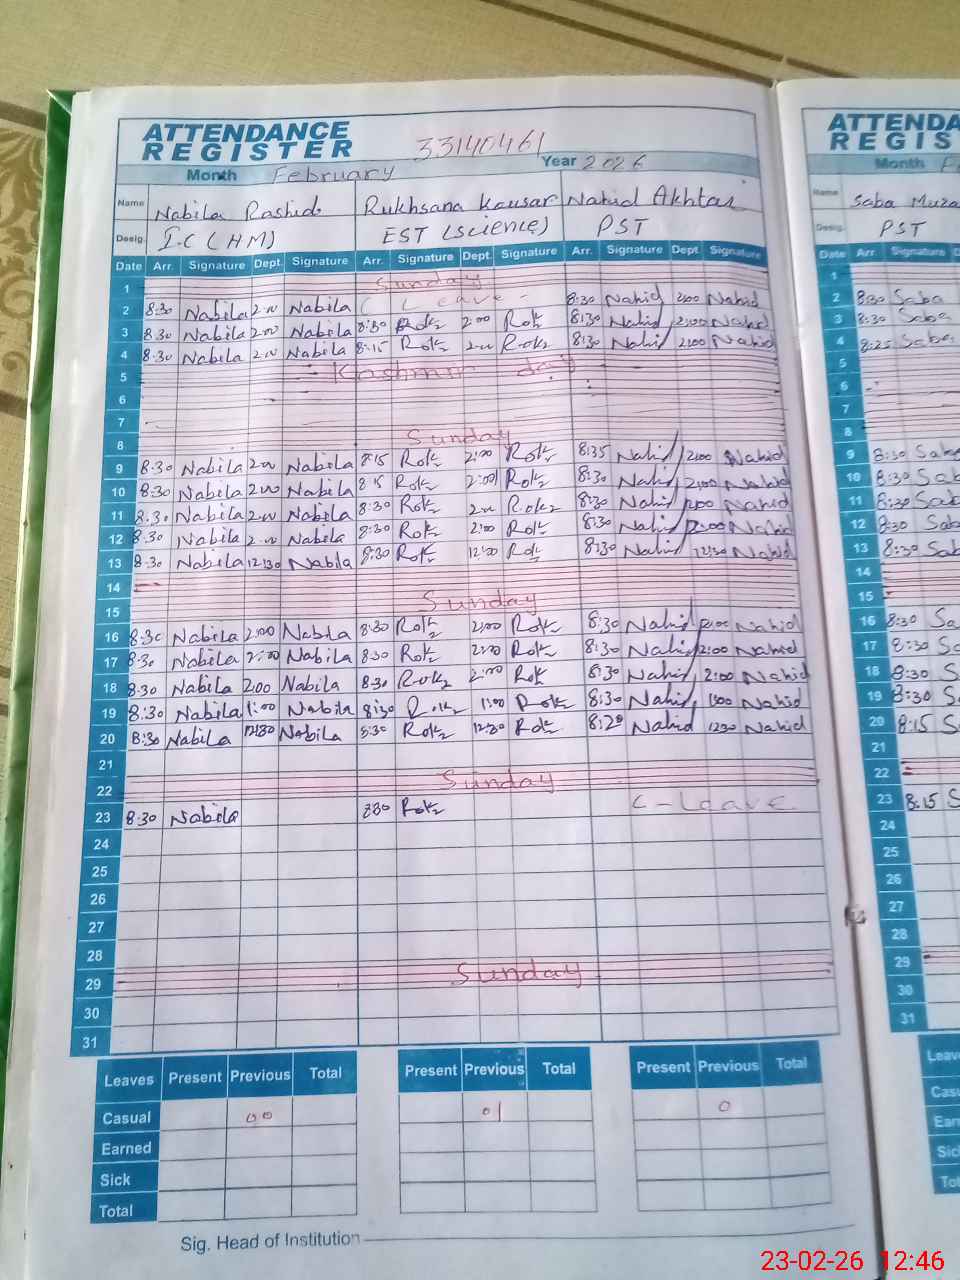 ATTENDANCE
REGISTER
33140461
Month February Year 2026
Name Nabila Rashid Rukhsana Kausar Nahid Akhtar
Desig. I.C (HM) EST (science) PST
Date Arr. Signature Dept. Signature Arr. Signature Dept. Signature Arr. Signature Dept. Signature
1 Sunday
2 8:30 Nabila 2:00 Nabila C Leave - 8:30 Nahid 2:00 Nahid
3 8:30 Nabila 2:00 Nabila 8:30 2:00 8:30 Nahid 2:00 Nahid
4 8:30 Nabila 2:00 Nabila 8:15 2:00 8:30 Nahid 2:00 Nahid
5 Kashmir day
6
7
8 Sunday
9 8:30 Nabila 2:00 Nabila 8:15 2:00 8:35 Nahid 2:00 Nahid
10 8:30 Nabila 2:00 Nabila 8:15 2:00 8:30 Nahid 2:00 Nahid
11 8:30 Nabila 2:00 Nabila 8:30 2:00 8:30 Nahid 2:00 Nahid
12 8:30 Nabila 2:00 Nabila 8:30 2:00 8:30 Nahid 2:00 Nahid
13 8:30 Nabila 12:30 Nabila 8:30 12:30 8:30 Nahid 12:30 Nahid
14
15 Sunday
16 8:30 Nabila 2:00 Nabila 8:30 2:00 8:30 Nahid 2:00 Nahid
17 8:30 Nabila 2:00 Nabila 8:30 2:00 8:30 Nahid 2:00 Nahid
18 8:30 Nabila 2:00 Nabila 8:30 2:00 8:30 Nahid 2:00 Nahid
19 8:30 Nabila 1:00 Nabila 8:30 1:00 8:30 Nahid 1:00 Nahid
20 8:30 Nabila 12:30 Nabila 8:30 12:30 Nahid 12:30 Nahid
21
22 Sunday
23 8:30 Nabila 8:30 C-Leave
24
25
26
27
28
29 Sunday
30
31
Leaves Present Previous Total Present Previous Total Present Previous Total
Casual 00 01 0
Earned
Sick
Total
Sig. Head of Institution
ATTENDA
REGIS
Month
Name Saba
Desig. PST
Date Arr. Signature
1
2 8:30 Saba
3 8:30 Saba
4 8:25 Saba
5
6
7
8
9 8:30
10 8:30
11 8:30
12 8:30
13 8:30
14
15
16 8:30
17 8:30
18 8:30
19 8:30
20 8:15
21
22
23 8:15
24
25
26
27
28
29
30
31
23-02-26 12:46